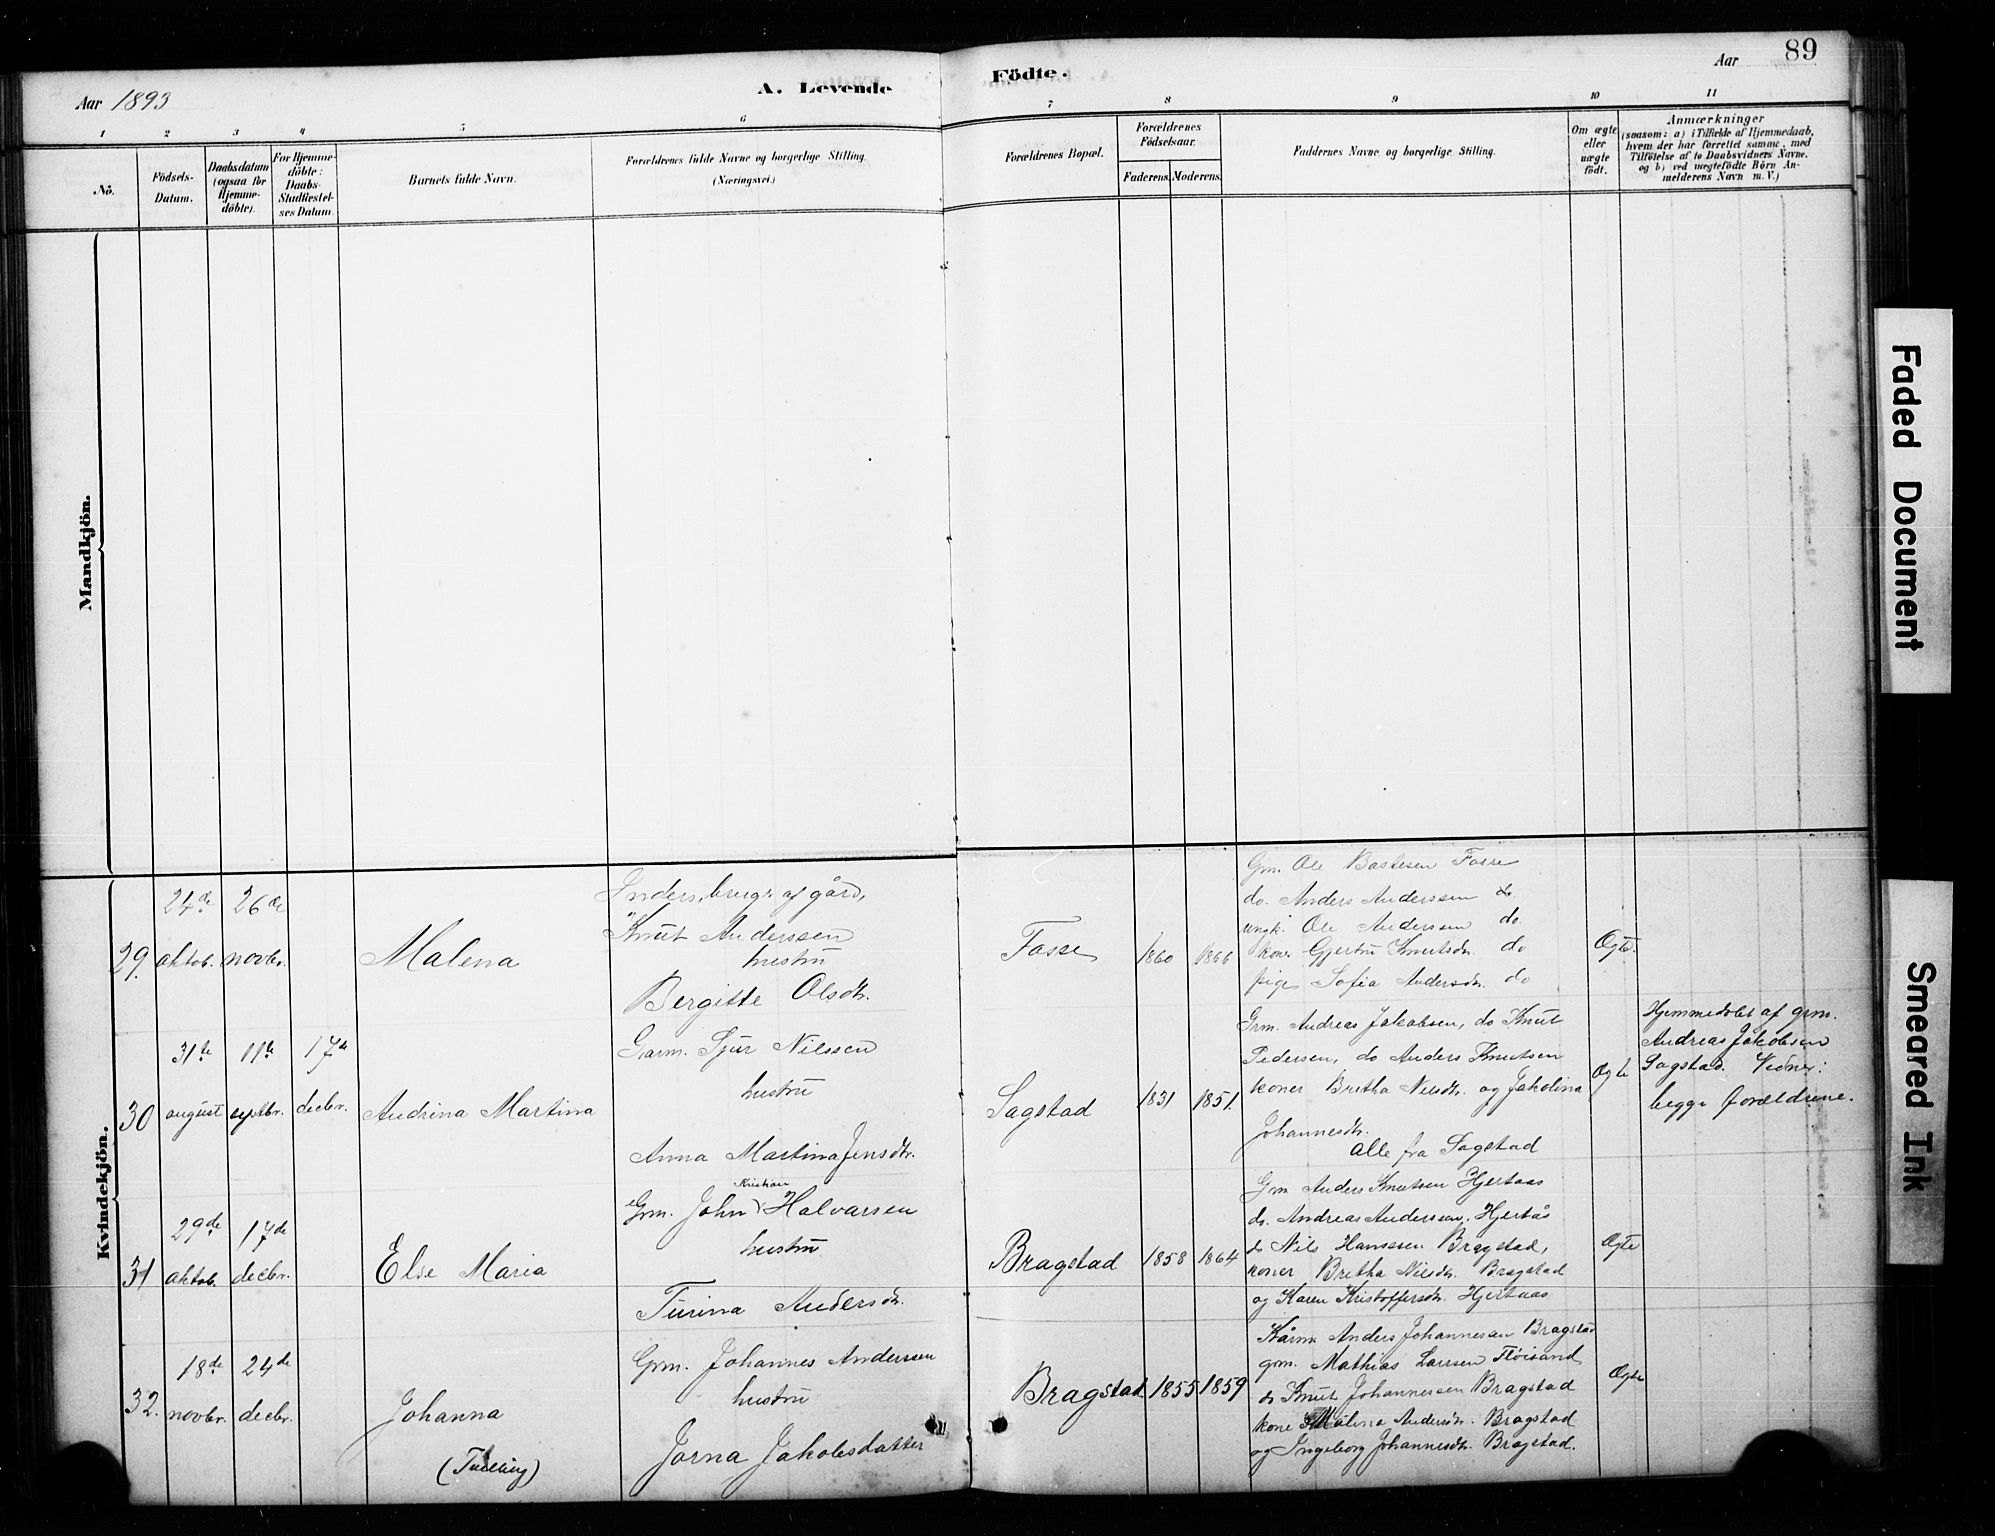 89
A. Levende Födte.
Aar 1893
Aar
1 2 3 4 5 6 7 8 9 10 11
No.
Födsels-Datum.
Daabsdatum (ogsaa for Hjemme-döbte).
For Hjemme-döbte: Daabs-Stadfæstel-ses Datum.
Barnets fulde Navn.
Forældrenes fulde Navne og borgerlige Stilling. (Næringsvei.)
Forældrenes Bopæl.
Forældrenes Födselsaar.
Faderens. Moderens.
Faddernes Navne og borgerlige Stilling.
Om ægte eller uægte födt.
Anmærkninger
(saasom: a) i Tilfælde af Hjemmedaab,
hvem der har forrettet samme, med
Tilföielse af to Daabsvidners Navne,
og b) ved uægtefödte Börn An-
melderens Navn m. V.)
Mandkjön.
Kvindekjön.
29. 24de oktob. 26de novbr.
Malena
brugr af gård,
Knut Anderssen
hustru
Bergitte Olsdtr.
Fosse 1860 1866
Grm. Ole Bastesen Fosse
do. Anders Anderssen do
ungk. Ole Anderssen do.
kone Gjertru Knutsdtr. do
pige Sofia Andersdtr. do
Ægte.
30 31te august 11te septbr. 17de decbr.
Andrina Martina
Garm. Sjur Nilssen
hustru
Anna Martina Jensdtr.
Sagstad 1831 1851.
Grm. Andreas Jakobsen, do Knut
Pedersen, do Anders Knutsen
koner Bretha Nilsdtr. og Jakolina
Johannesdtr.
Alle fra Sagstad
Ægte
Hjemmedøbt af grm.
Andreas Jakobsen
Sagstad. Vidner:
begge forældrene.
31 29de oktob. 17de decbr.
Else Maria
Kristian
Grm. John Halvarsen
hustru
Turina Andersdtr.
Bragstad 1858 1864
Grm Anders Knutsen Hjertaas
do. Andreas Anderssen, Hjertås
do Nils Hanssen Bragstad,
koner Bretha Nilsdtr. Bragstad
og Karen Kristoffersdtr. Hjertaas
Ægte
32. 18de novbr. 24de decbr.
Johanna
(Tvilling)
Grm. Johannes Anderssen
hustru
Jorna Jakobsdatter
Bragstad 1855 1859
Kårm Anders Johannesen Bragstad
grm. Mathias Larssen Fløisand
do Knut Johannessen Bragstad
kone Malina Andersdtr. Bragstad
og Ingeborg Johannesdtr. Bragstad.
Ægte
Faded Document
Smeared Ink